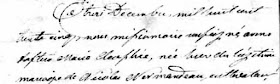 Le trois Decembre mil huit cent
trente cinq, nous missionnaire soussigné avons
baptisé Marie Josephte, née hier du légitime
mariage de Nicolas Normandeau, cultivateur